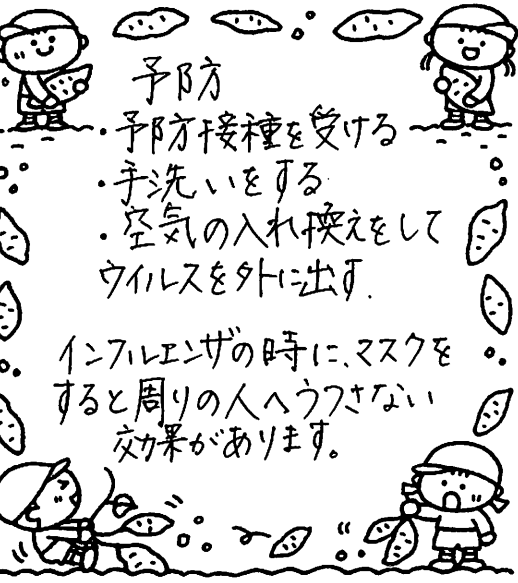 予防
・予防接種を受ける
・手洗いをする
・空気の入れ換えをして
ウイルスを外に出す.
インフルエンザの時に、マスクを
すると周りの人へうつさない
効果があります。